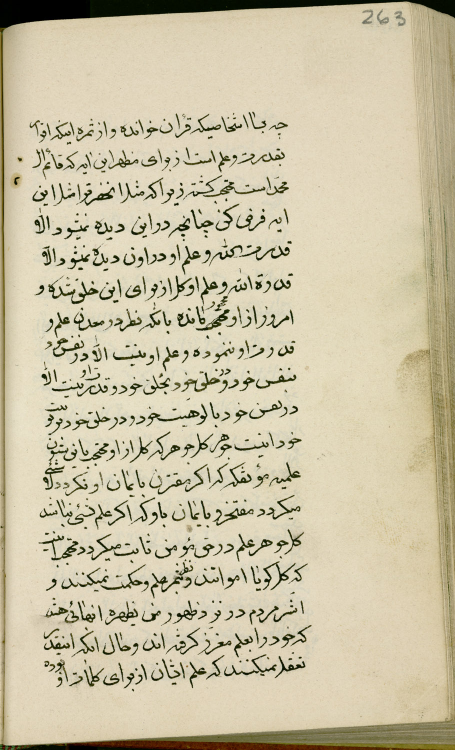 263
چه بسا اشخاصیکه قرآن خوانده و از ثمره اینکه اقرار
بقدرت و علم است از برای مظهر این ایه که قائم ال
محمد است محتجب گشته زیرا که مثلا انهم قرا مثلا این
ایه فرض کن چنانچه در این دیده نمیشود الا
قدرت الله و علم او در اون دیده نمیشود الا
قدرة الله و علم او کل از برای این خلق شده و
امروز از او محتجب مانده بانکه نظر در معدن علم و
قدرت او ننموده و علم او نیست الا در نفس خود
بنفس خود و در خلق خود بخلق خود و قدرت او نیست الا
در نفس خود بالوهیت خود و در خلق خود بربوبیت
خود اینست جوهر کل جوهر که کل از او محتجب
علمیه مؤتفکه که اگر مقترن بایمان او نگردد لا شیئ
میگردد مفتخر و بایمان باو که اگر علم شیئی نباشد
کل جوهر علم در حق مومن ثابت میگردد محتجب
که کل گویا امواتند و تکلم بعلم و حکمت میکنند و
اشر مردم در نزد ظهور من یظهره انهائی هستند
که خود را بعلم معزز گرفته اند و حال انکه اینقدر
تعقل نمیکنند که علم ایشان از برای کلمات او بوده